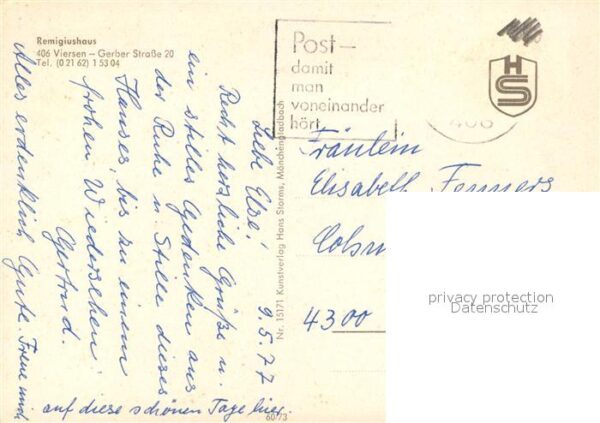 Remigiushaus
406 Viersen – Gerber Straße 20
Tel. (0 21 62) 1 53 04
Post –
damit
man
voneinander
hört
406
HS
Nr. 15171 Kunstverlag Hans Storms, Mönchengladbach
60/73
9.5.77
Liebe Else!
Recht herzliche Grüße u.
ein stilles Gedenken aus
der Ruhe u. Stille dieses
Hauses, bis zu einem
frohen Wiedersehen
Gertrud.
Alles erdenklich Gute. Freue mich
auf diese schönen Tage hier.
Fräulein
Elisabeth Fenners
4300
privacy protection
Datenschutz